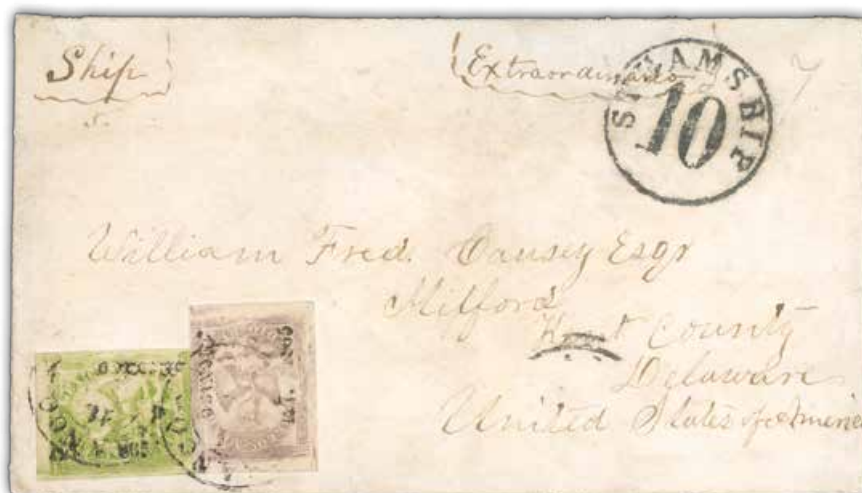 Ship
Extraordinario
STEAMSHIP
10
7
William Fred. Causey Esqr
Milford
Kent County
Delaware
United States of America
MEXICO
1865
147. 1865